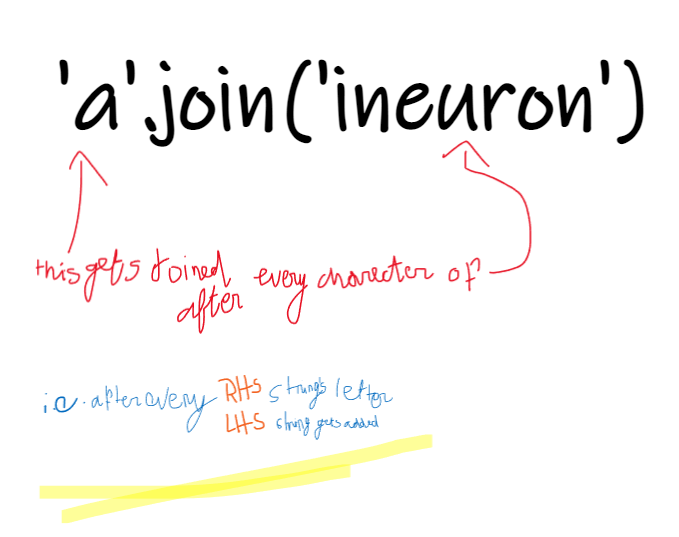 'a'.join('ineuron')
this gets joined every charecter of
after
i.e. after every RHS string's letter
LHS string gets added